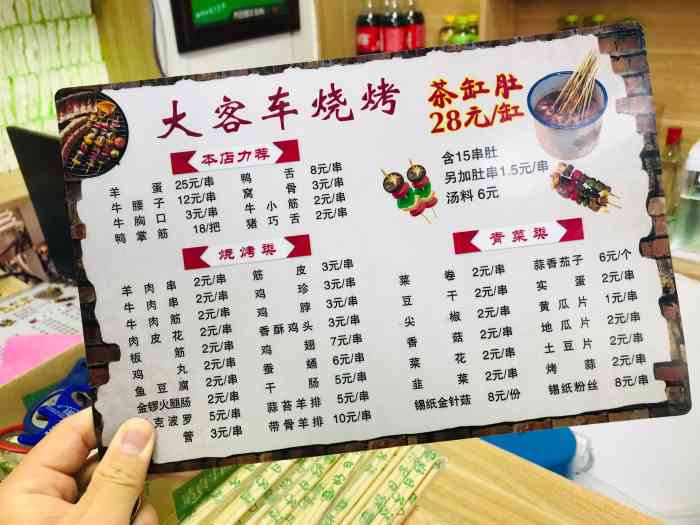 大客车烧烤
茶缸肚
28元/缸
含15串肚
另加肚串1.5元/串
汤料 6元
本店力荐
羊蛋 25元/串 鸭舌 8元/串
牛腰子 12元/串 窝骨 3元/串
牛胸口 3元/串 牛小筋 2元/串
鸭掌筋 18/把 猪巧舌 2元/串
烧烤类
羊肉串 2元/串 筋皮 3元/串
牛肉串 2元/串 鸡珍 3元/串
牛肉筋 2元/串 鸡脖 3元/串
肉皮花 2元/串 香酥鸡头 3元/串
板筋 2元/串 鸡翅 7元/串
鸡丸 2元/串 蚕蛹 6元/串
鱼豆腐 2元/串 干肠 5元/串
金锣火腿肠 2元/串 蒜苔羊排 5元/串
克波罗 5元/串 带骨羊排 10元/串
管 3元/串
青菜类
菜卷 2元/串 蒜香茄子 6元/个
豆干 2元/串 实蛋 2元/串
尖椒 2元/串 黄瓜片 1元/串
香菇 2元/串 地瓜片 2元/串
菜花 2元/串 土豆片 2元/串
韭菜 2元/串 烤蒜 2元/串
锡纸金针菇 8元/份 锡纸粉丝 8元/串